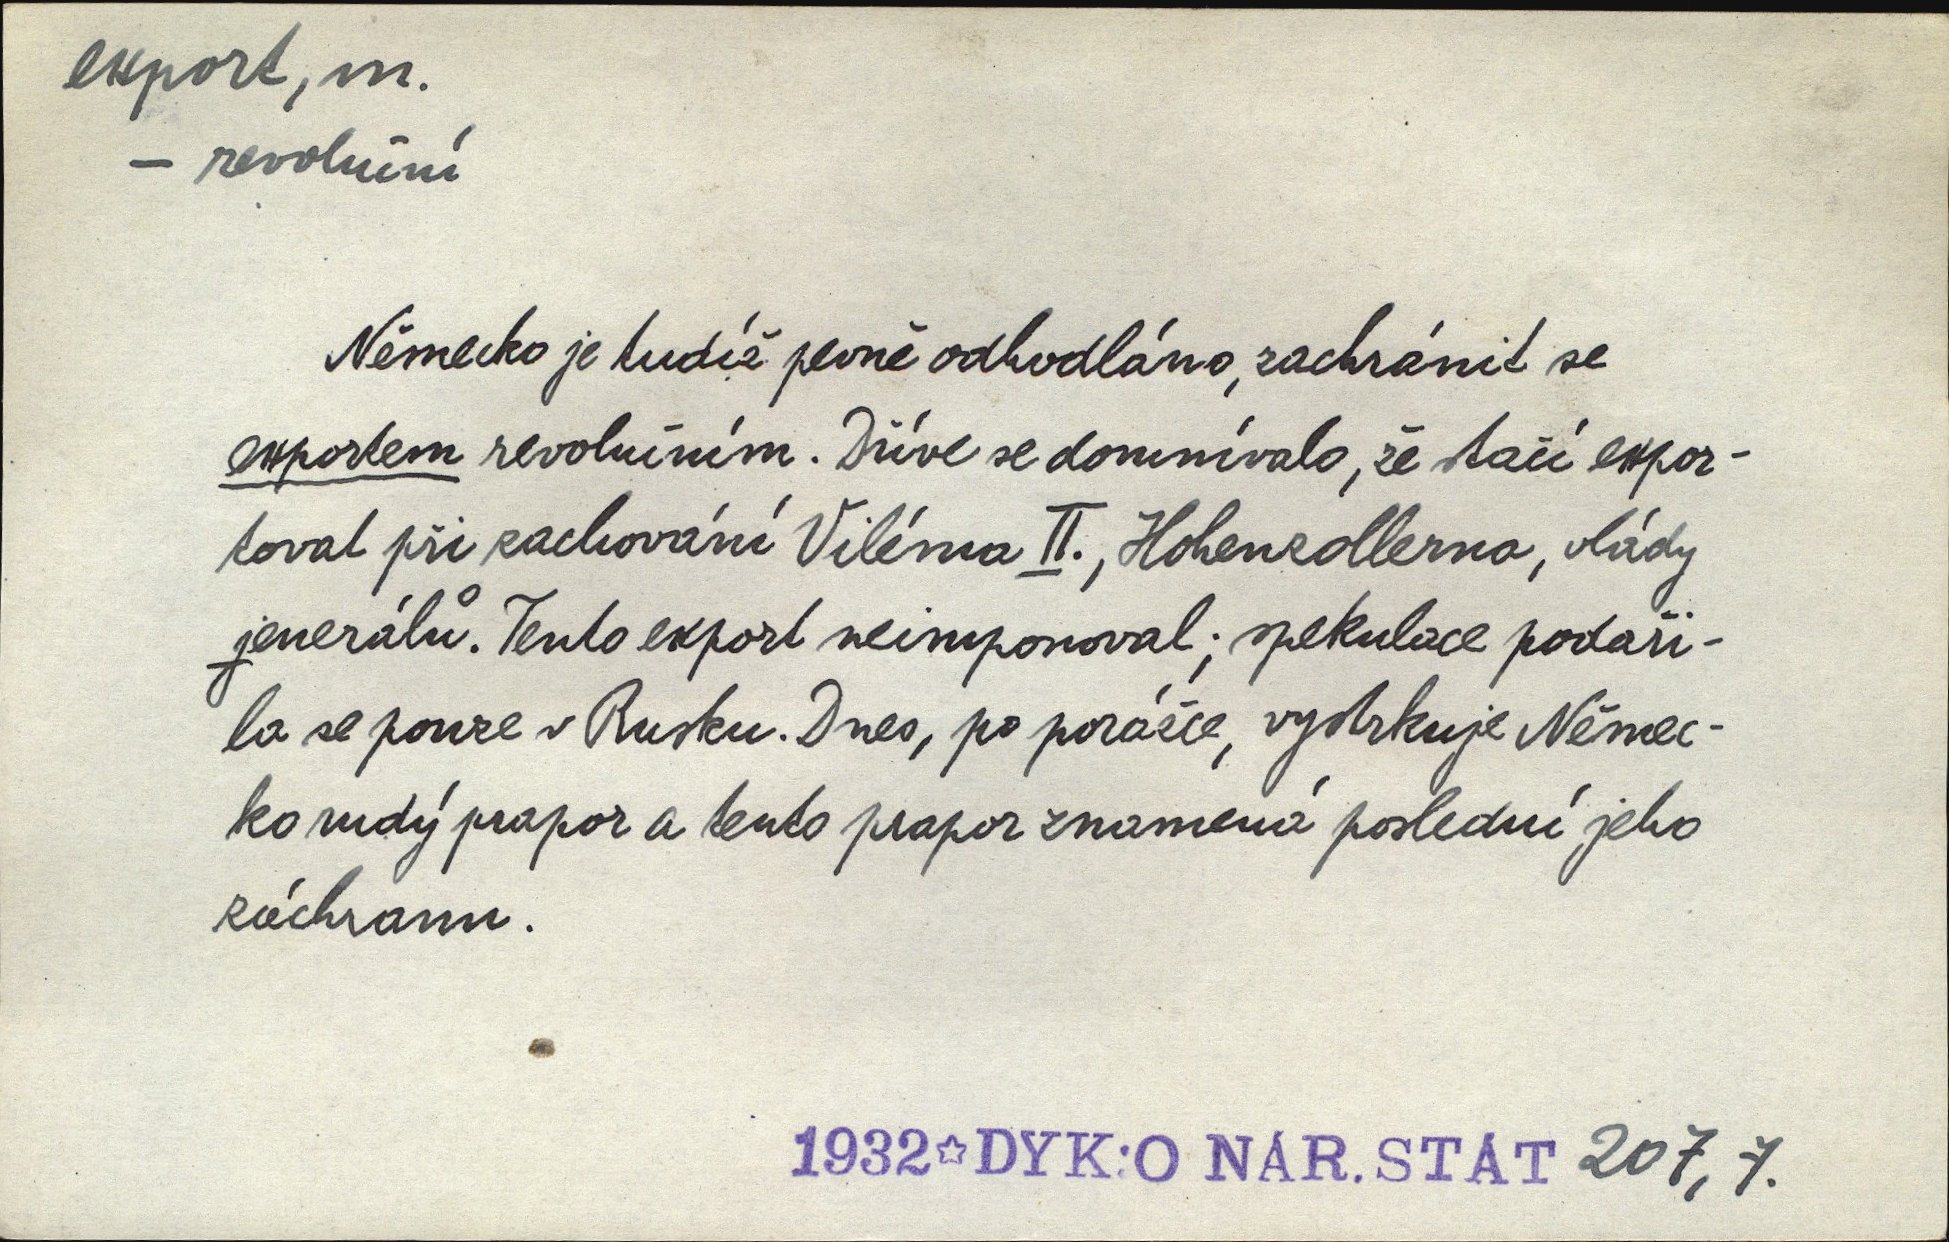 export, m.
– revoluční
Německo je tudíž pevně odhodláno, zachránit se
exportem revolučním. Dříve se domnívalo, že stačí expor-
tovat při zachování Viléma II., Hohenzollerna, vlády
jenerálů. Tento export neimponoval; spekulace podaři-
la se pouze v Rusku. Dnes, po porážce, vystrkuje Němec-
ko rudý prapor a tento prapor znamená poslední jeho
záchranu.
1932☆DYK:O NÁR.STÁT 207, 7.